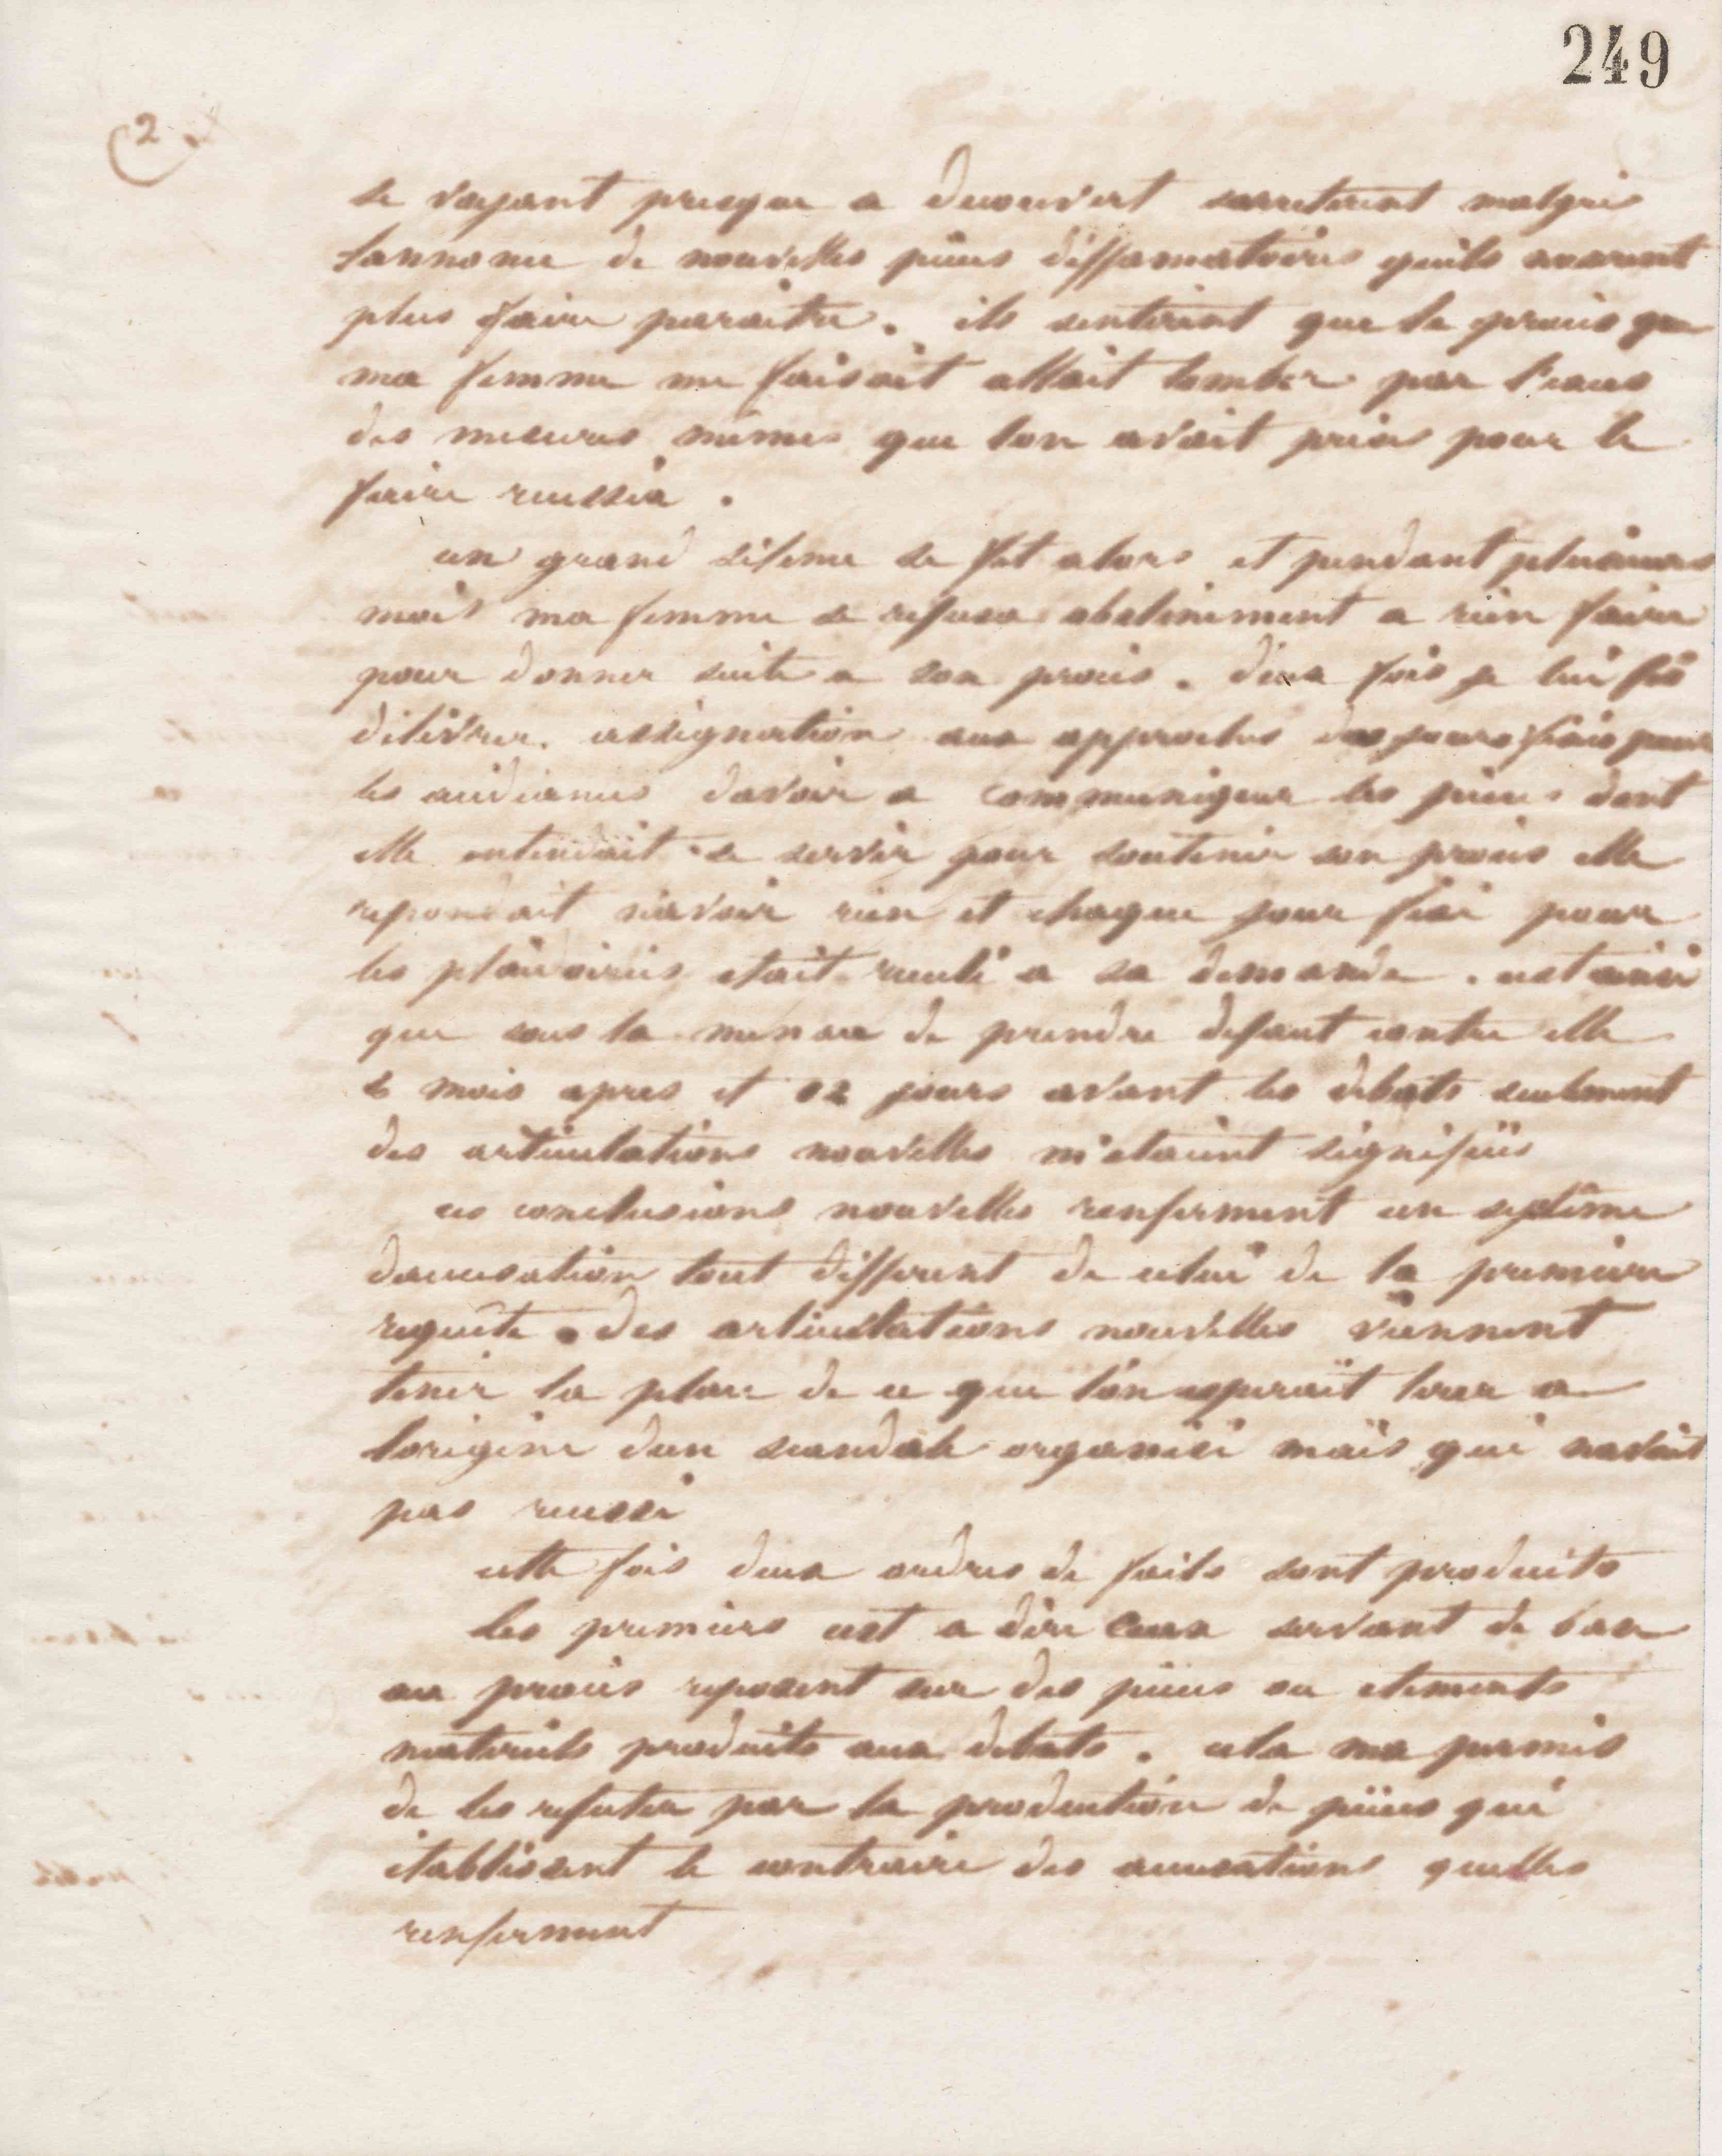 249
2
se voyant presque a decouvert sarreterent malgré
lannonce de nouvelles pieces diffamatoires quils noserent
plus faire paraitre. ils sentirent que le proces que
ma femme me faisait allait tomber par l'exces
des mesures mêmes que lon avait prises pour le
faire reussir.
un grand silence se fit alors et pendant plusieurs
mois ma femme se refusa obstinement a rien faire
pour donner suite a son proces. deux fois je lui fis
délivrer assignation aux approches des jours fixés pour
les audiences davoir a communiquer les pieces dont
elle entendait se servir pour soutenir son proces elle
repondait n'avoir rien et chaque jour fixé pour
les plaidoiries etait reculé a sa demande. cest ainsi
que sous la menace de prendre defaut contre elle
mois apres et 12 jours avant les debats seulement
des articulations nouvelles m'etaient signifiées
ces conclusions nouvelles renferment un sistême
daccusation tout different de celui de la premiere
requête. des articulations nouvelles viennent
tenir la place de ce que l'on esperait tirer a
lorigine dun scandale organisé mais qui navait
pas reussi
cette fois deux ordres de faits sont produits
les premiers cest a dire ceux servant de base
au procès reposent sur des pieces ou elements
materiels produits aux debats. cela ma permis
de les refuter par la production de pièces qui
établissent le contraire des accusations quelles
renferment